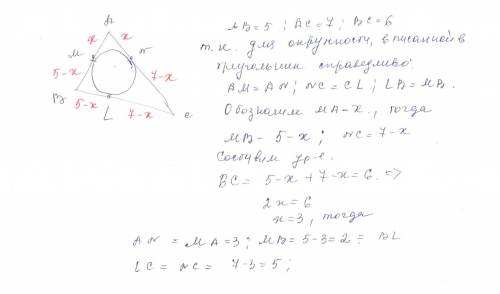 A
x x
M N
5-x 7-x
B 5-x L 7-x C
AB=5 ; AC=7 ; BC=6
т.к. для окружности, вписанной в
треугольник справедливо:
AM=AN ; NC=CL ; LB=MB.
Обозначим MA-x, тогда
MB- 5-x ; NC=7-x
Составим ур-е.
BC= 5-x+7-x=6. =>
2x=6
x=3, тогда
AN = MA=3 ; MB=5-3=2 = BL
LC= NC= 7-3=5 ;